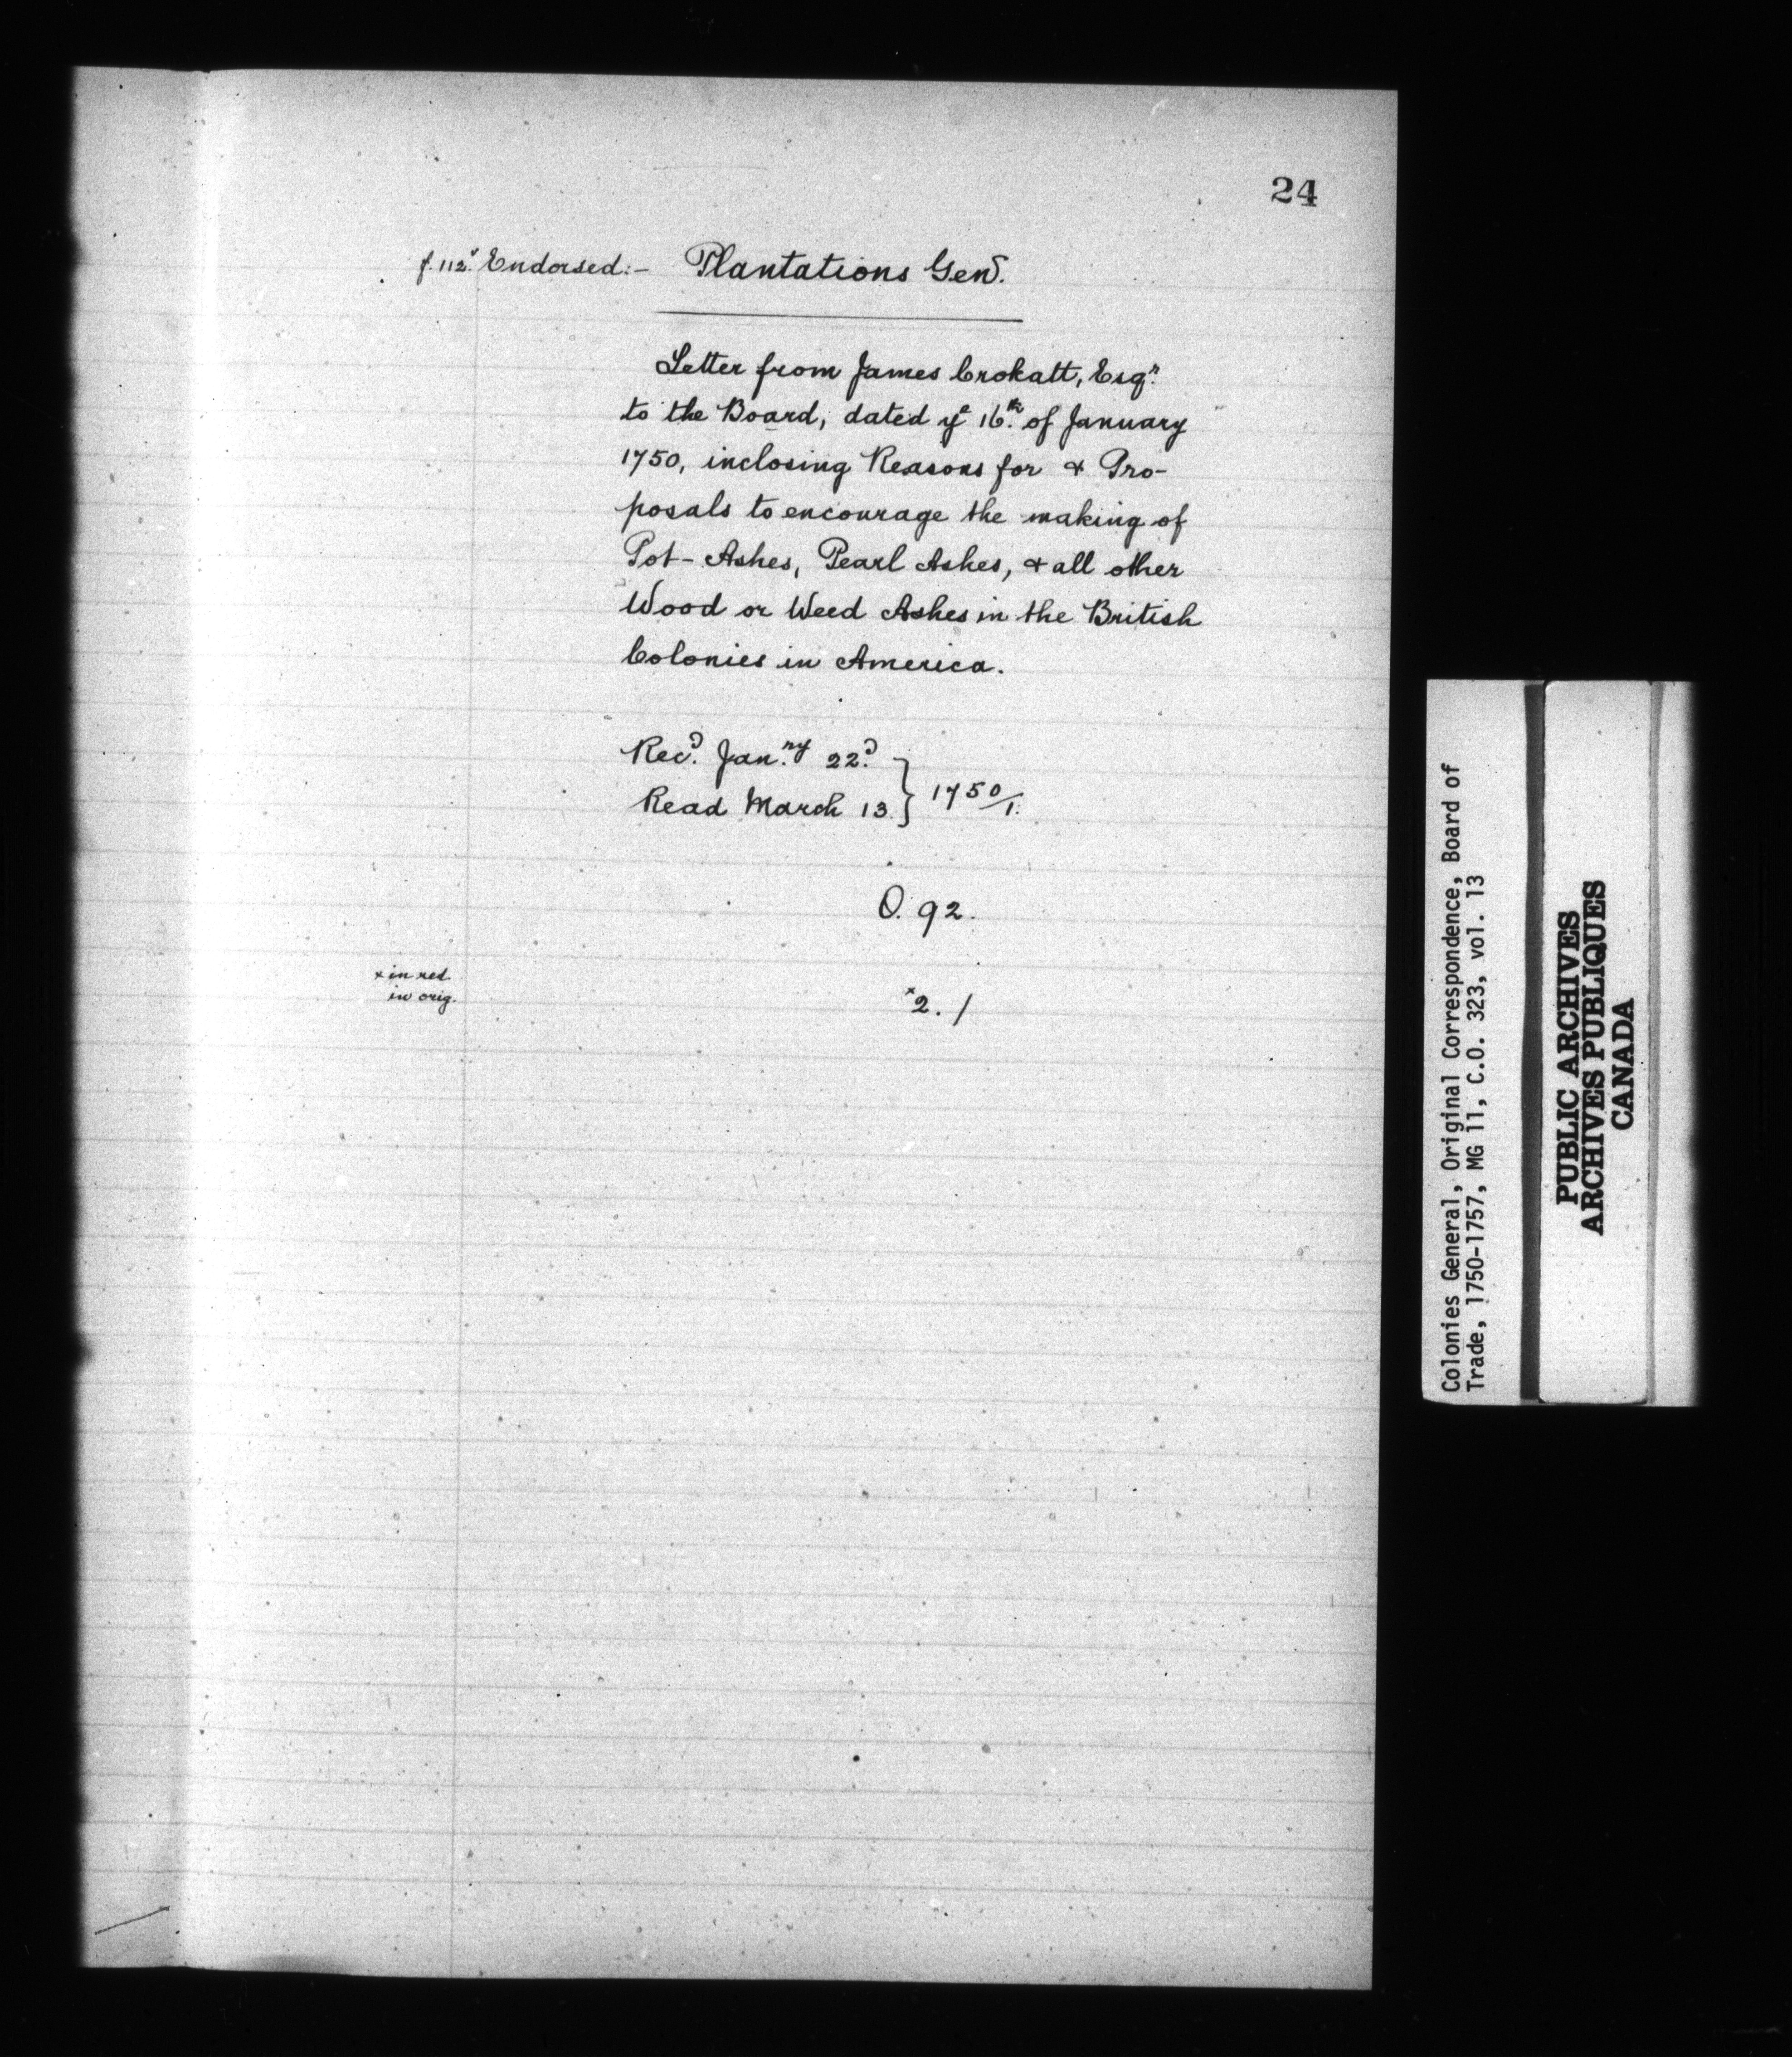 24
f. 112v. Endorsed:- Plantations Genl.
Letter from James Crokatt, Esqr.
to the Board, dated ye 16th. of January
1750, inclosing Reasons for & Pro-
posals to encourage the making of
Pot-Ashes, Pearl Ashes, & all other
Wood or Weed Ashes in the British
Colonies in America.
Recd. Janry. 22d. }
Read March 13 } 1750/1.
O. 92.
x in red
in orig.
x 2. /
Colonies General, Original Correspondence, Board of
Trade, 1750-1757, MG 11, C.O. 323, vol. 13
PUBLIC ARCHIVES
ARCHIVES PUBLIQUES
CANADA